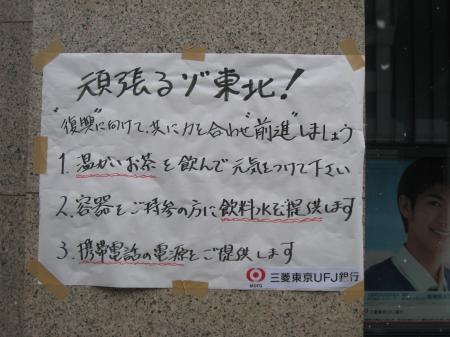 頑張るゾ東北!
"復興"に向けて、共に力を合わせ"前進"しましょう
1. 温かいお茶を飲んで元気をつけて下さい
2. 容器をご持参の方に飲料水を提供します
3. 携帯電話の電源をご提供します
MUFG
三菱東京UFJ銀行